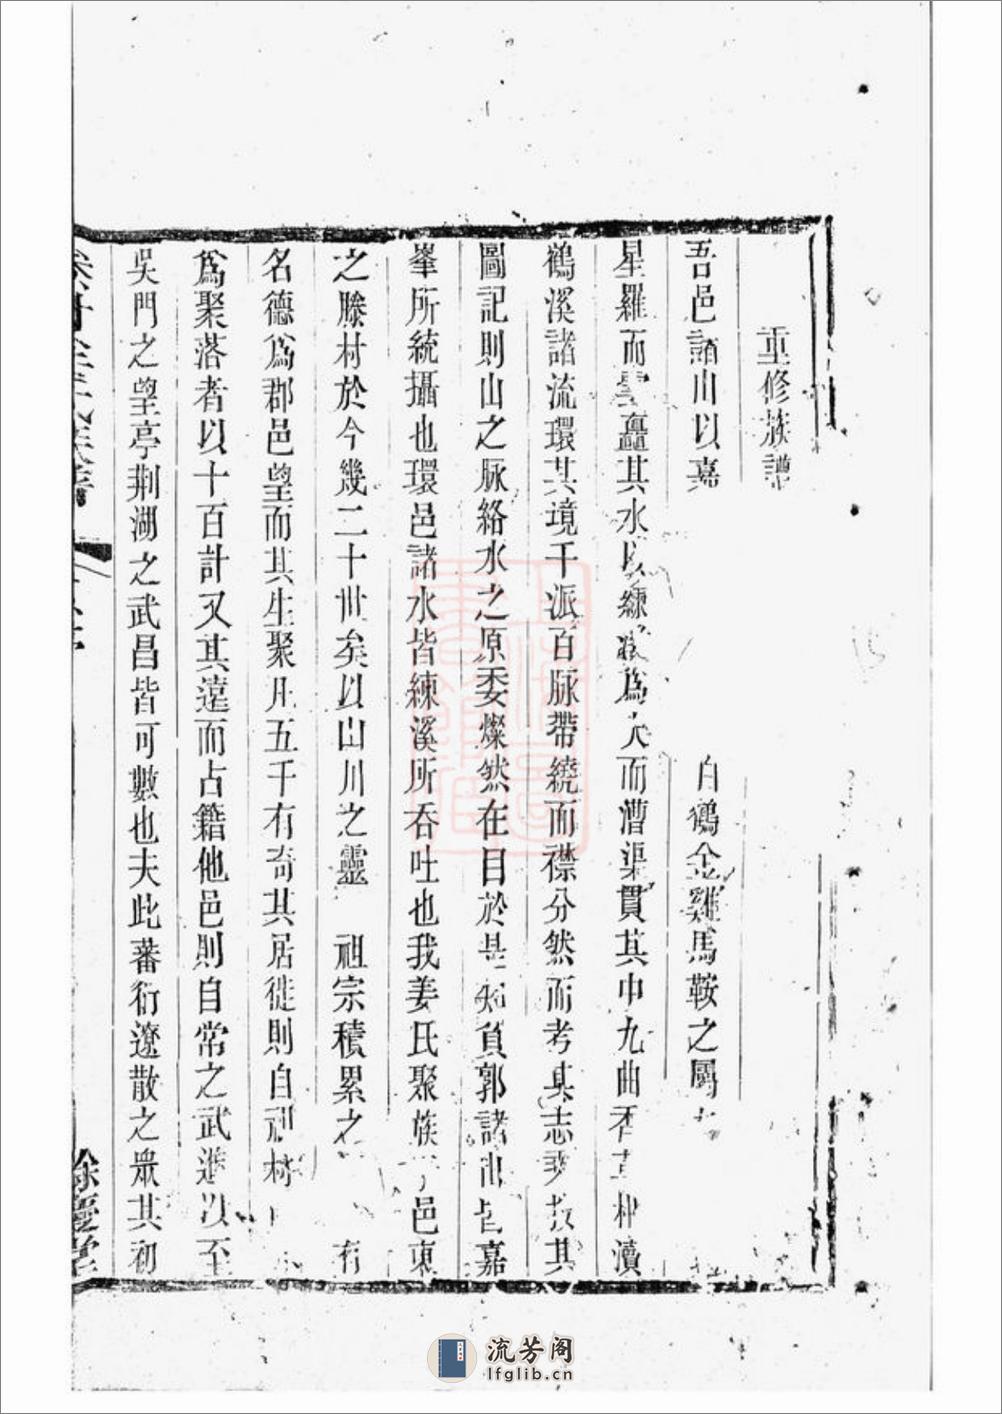 重修族譜
吾邑諸山以嘉 白鶴金雞馬鞍之屬
星羅而雲矗其水以練 為大而漕渠貫其中九曲香草柳瀆
鶴溪諸流環其境千派百脉帶繞而襟分然而考其志 其
圖記則山之脉絡水之原委燦然在目於是知負郭諸山皆嘉
峯所統攝也環邑諸水皆練溪所吞吐也我姜氏聚族 邑東
之滕村於今幾二十世矣以山川之靈 祖宗積累之 有
名德爲郡邑望而其生聚凡五千有奇其居徙則自祖村
爲聚落者以十百計又其遠而占籍他邑則自常之武進以至
吳門之望亭荆湖之武昌皆可數也夫此蕃衍遼散之眾其初
餘慶堂
流芳阁
lfglib.cn